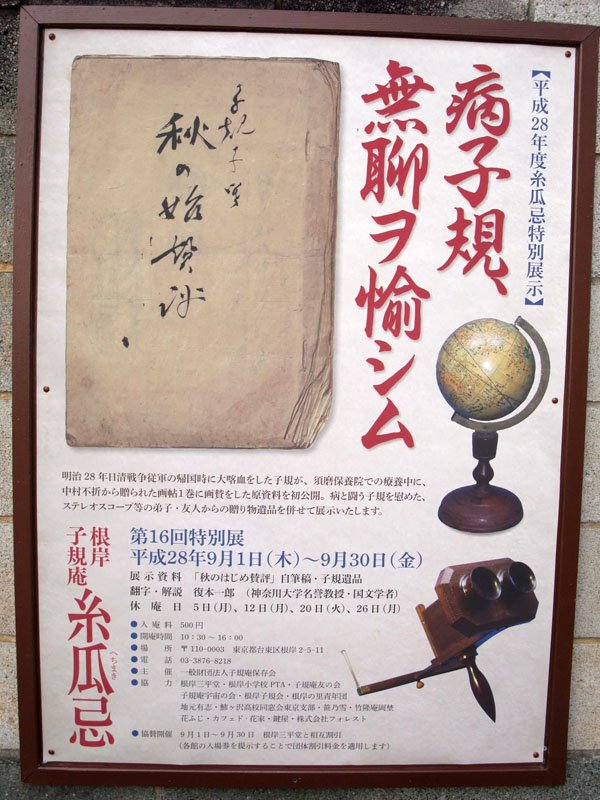 【平成28年度糸瓜忌特別展示】
病子規、
無聊ヲ愉シム
子規子
秋の
明治28年日清戦争従軍の帰国時に大喀血をした子規が、須磨保養院での療養中に、
中村不折から贈られた画帖1巻に画賛をした原資料を初公開。病と闘う子規を慰めた、
ステレオスコープ等の弟子・友人からの贈り物遺品を併せて展示いたします。
根岸
子規庵
糸瓜忌
へちまき
第16回特別展
平成28年9月1日(木)～9月30日(金)
展示資料 「秋のはじめ賛評」自筆稿・子規遺品
翻字・解説 復本一郎 (神奈川大学名誉教授・国文学者)
休庵日 5日(月)、12日(月)、20日(火)、26日(月)
●入庵料 500円
●開庵時間 10：30～16：00
●場所 〒110-0003 東京都台東区根岸2-5-11
●電話 03-3876-8218
●主催 一般財団法人子規庵保存会
●協力 根岸三平堂・根岸小学校PTA・子規庵友の会
子規庵宇宙の会・根岸子規会・根岸の里青年団
地元有志・鰺ヶ沢高校同窓会東京支部・笹乃雪・竹隆庵岡埜
花ふじ・カフェド・花家・鍵屋・株式会社フォレスト
●協賛開催 9月1日～9月30日 根岸三平堂と相互割引
(各館の入場券を提示することで団体割引料金を適用します)